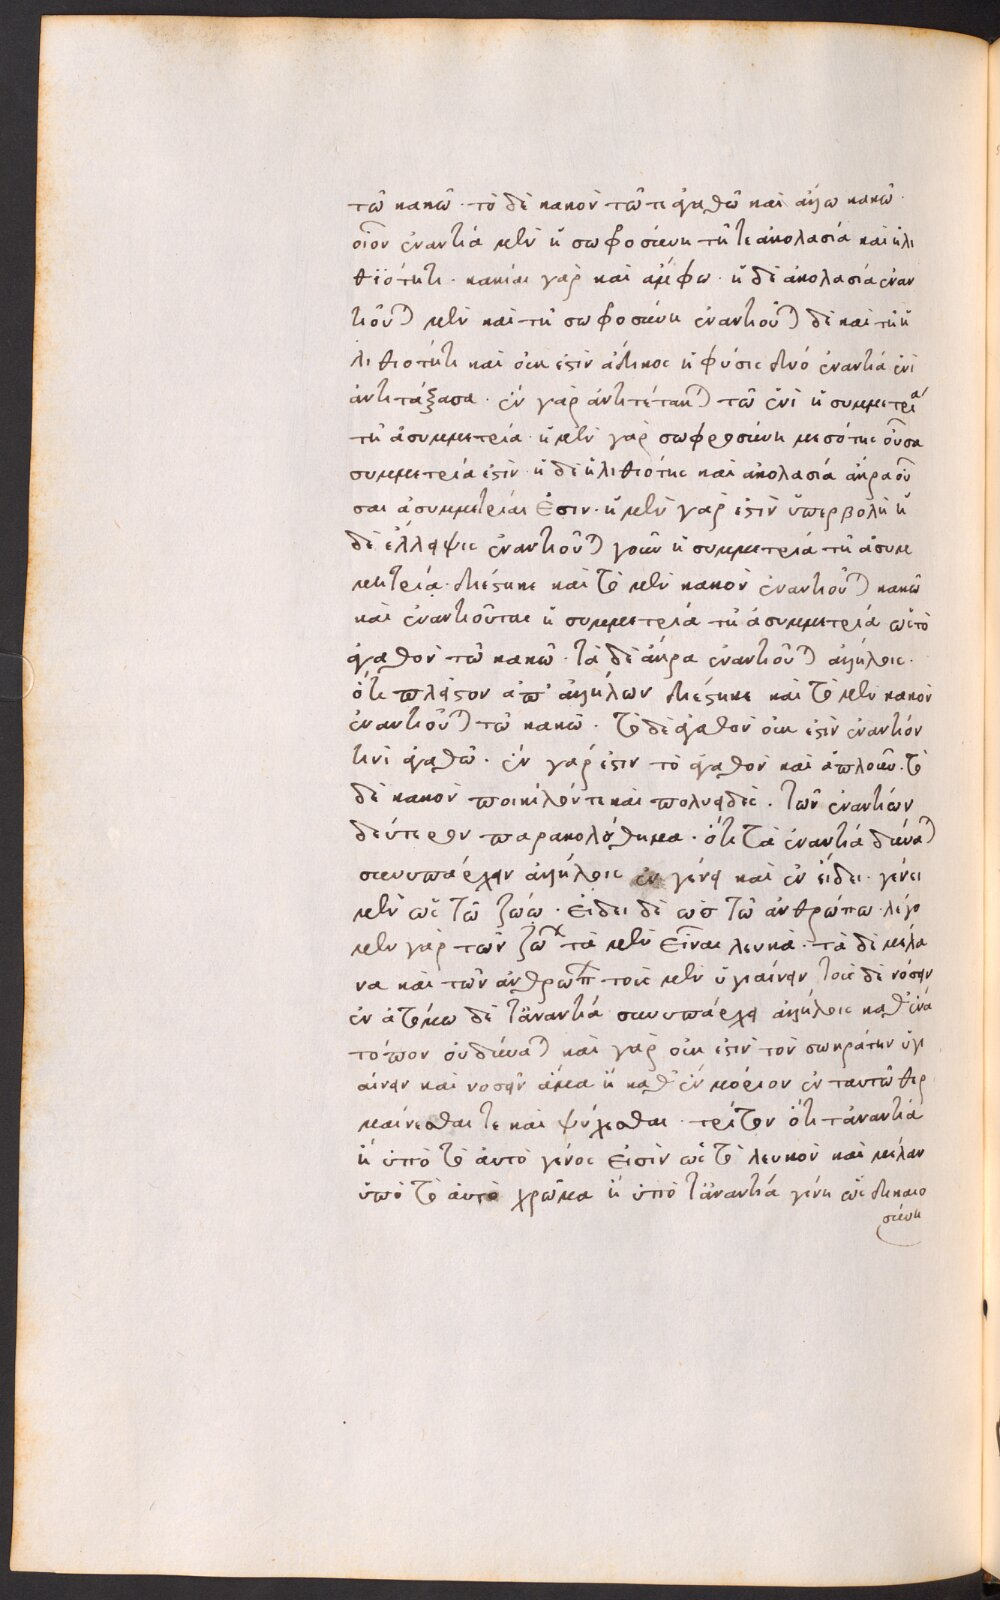 τῶ κακῶ · τὸ δὲ κακὸν τῶ τε ἀγαθῶ καὶ ἄλλω κακῶ ·
οἷον ἐναντία μὲν ἡ σωφροσύνη τῆ τε ἀκολασία καὶ ἠλι
θιότητι · κακίαι γὰρ καὶ ἄμφω · ἡ δὲ ἀκολασία ἐναν
τιοῦται μὲν καὶ τῆ σωφροσύνη ἐναντιοῦται δὲ καὶ τῆ ἠ
λιθιότητι καὶ οὐκ ἐστὶν ἄδικος ἡ φύσις δύο ἐναντία ἑνὶ
ἀντιτάξασα · ἓν γὰρ ἀντιτέτακται τῶ ἑνὶ ἡ συμμετρία
τῆ ἀσυμμετρία · ἡ μὲν γὰρ σωφροσύνη μεσότης οὖσα
συμμετρία ἐστὶν · ἡ δὲ ἠλιθιότης καὶ ἀκολασία ἄκρα οὖ
σαι ἀσυμμετρίαι εἰσιν · ἡ μὲν γὰρ ἐστὶν ὑπερβολὴ ἡ
δὲ ἔλλειψις ἐναντιοῦται γοῦν ἡ συμμετρία τῆ ἀσυμ
μετρία · διέστηκε καὶ τὸ μὲν κακὸν ἐναντιοῦται κακῶ
καὶ ἐναντιοῦται ἡ συμμετρία τῆ ἀσυμμετρία ὡς τὸ
ἀγαθὸν τῶ κακῶ · τὰ δὲ ἄκρα ἐναντιοῦται ἀλλήλοις ·
ὅτι πλεῖστον ἀπ' ἀλλήλων διέστηκε καὶ τὸ μὲν κακὸν
ἐναντιοῦται τῶ κακῶ · τὸ δὲ ἀγαθὸν οὐκ ἐστὶν ἐναντίον
τινὶ ἀγαθῶ · ἓν γάρ ἐστιν τὸ ἀγαθὸν καὶ ἁπλοῦν · τὸ
δὲ κακὸν ποικίλόν τε καὶ πολυειδὲς · τῶν ἐναντίων
δεύτερον παρακολούθημα · ὅτι τὰ ἐναντία δύναται
συνυπάρχειν ἀλλήλοις ἐν γένει καὶ ἐν εἴδει · γένει
μὲν ὡς τῶ ζώω · εἴδει δὲ ὡς τῶ ἀνθρώπω · λέγο
μεν γὰρ τῶν ζώων τὰ μὲν εἶναι λευκὰ · τὰ δὲ μέλα
να καὶ τῶν ἀνθρώπων τοὺς μὲν ὑγιαίνειν τοὺς δὲ νόσειν
ἐν ἀτόμω δὲ τἀναντία συνυπάρχει ἀλλήλοις καθ' ἕνα
τόπον οὐ δύναται καὶ γὰρ οὐκ ἐστὶν τὸν σωκράτην ὑγι
αίνειν καὶ νοσεῖν ἅμα ἢ καθ' ἓν μόριον ἐν ταυτῶ θερ
μαίνεσθαι τε καὶ ψύχεσθαι · τρίτον ὅτι τἀναντία
ἢ ὑπὸ τὸ αὐτὸ γένος εἰσὶν ὡς τὸ λευκὸν καὶ μέλαν
ὑπὸ τὸ αὐτὸ χρῶμα ἢ ὑπὸ τἀναντία γένη ὡς δικαιο
σύνη